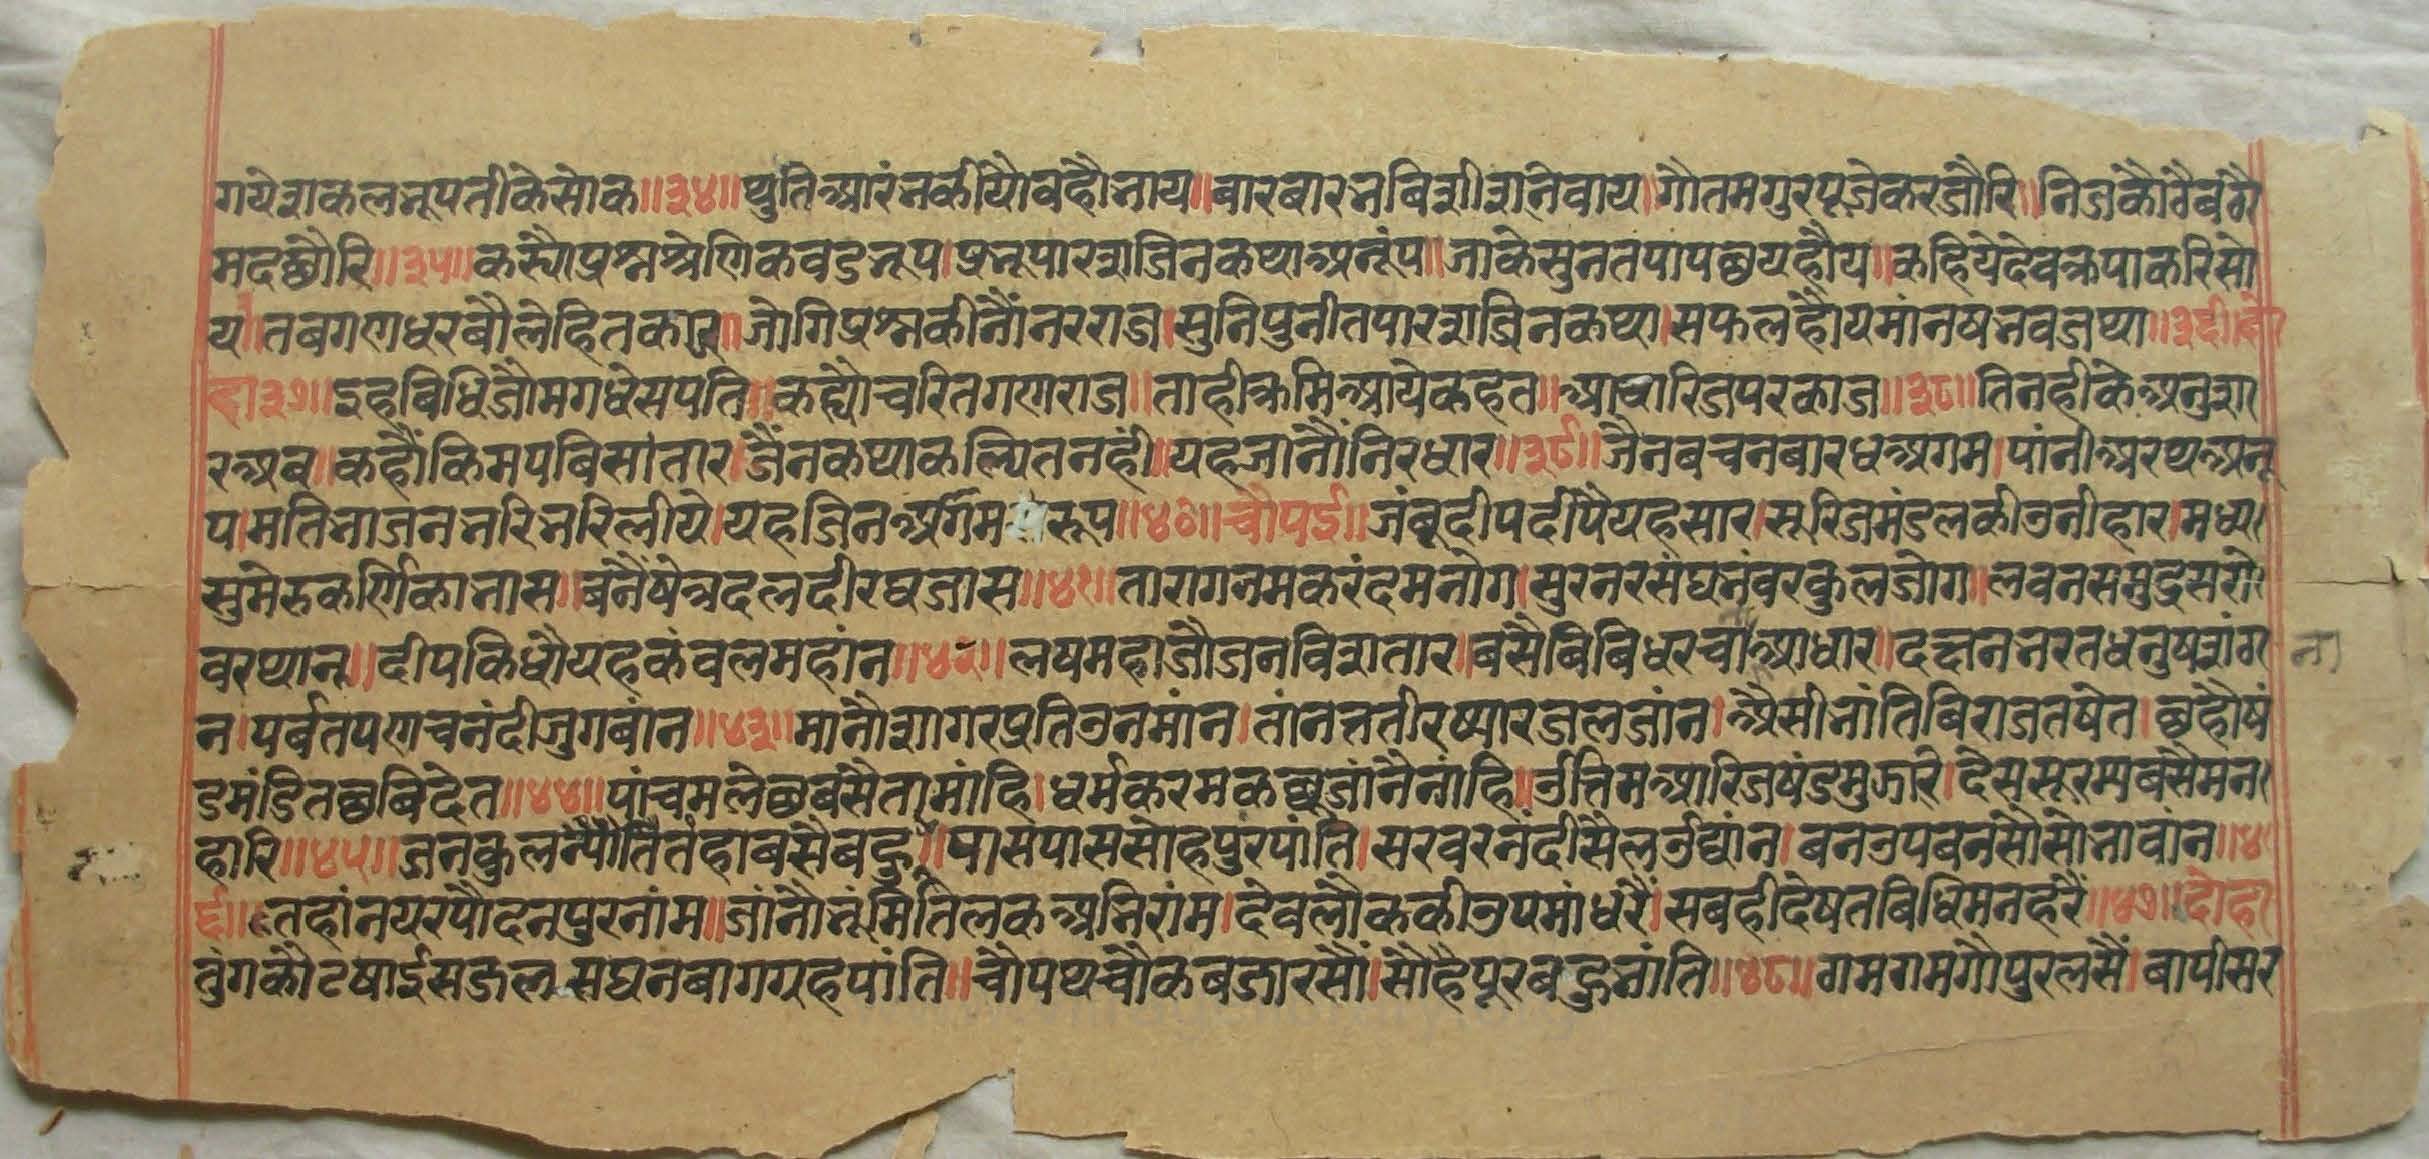 गये शकल नूपती के सोक॥३४॥ थुति आरंभ कीयौ वहौ भाय॥ बार बार भबि शीश नवाय। गौतम गुर पूजे कर जौरि॥ निज कौठै बैठौ
मद छौरि॥३५॥ कस्यौ प्रश्न श्रेणिक वड नूप। प्रनू पारश जिन कथा अनूंप॥ जाके सुनत पाप छय हौंय॥ कहिये देव क्रपा करि सो
य। तब गणधर बौले हितकार॥ जोगि प्रश्न कीनौं नरराज। सुनि पुनीत पारश जिन कथा। सफल हौंय मांनष भव जथा॥३६॥ दो
हा ३७॥ इह बिधि जौ मगधेसपति॥ कह्यौ चरित गणराज॥ ताही क्रमि आये कहत॥ आचारिज परकाज॥३८॥ तिनही के अनुशा
र अब॥ कहौं किमपि बिसातार। जैंन कथा कल्पित नहीं॥ यह जानौं निरधार॥३९॥ जैन बचन बारध अगम। पांनी अरथ अनू
प। मति भाजन भरि भरि लीये। यह जिन आगम रूप॥४०॥ चौपई॥ जंबूदीप दीपै यह सार। सूरिज मंडल की उनीहार। मध्य
सुमेरु कर्णिका भास॥ बनै षेत्र दल दीरघ जास॥४१॥ तारागन मकरंद मनोग। सुर नर संघ भंवर कुल जोग॥ लवन समुद्र सरो
वर थान॥ दीप किधौ यह कंवल महांन॥४२॥ लष महा जौजन विशतार। बसै बिबिध रचना आधार॥ दछन भरत धनुष शंठा
न। पर्बत पणच नंदी जुग बांन॥४३॥ मानौ शागर प्रति उनमांन। तांनत तीर ष्यार जल जांन। अैसी भांति बिराजत षेत। छहौ षं
ड मंडित छबि देत॥४४॥ पांच मलेछ बंसै ता मांहि। धर्म करम कछू जांनै नांहि॥ उत्तिम आरिज षंड मुझारि। देस सूरम्य बसै मन
हारि॥४५॥ जन कुल भ्यौति तंहा बसै बहु॥ पास पास सोह पुर पांति। सरवर नंदी सैल उद्यांन। बन उपबन सौ सोभावांन॥४
६॥ तहां नयर पौदनपुर नांम॥ जांनौ भूंमि तिलक अभिरांम। देवलौक की उपमां धरैं। सबही देषत बिधि मन हरैं॥४७॥ दोहा
तुंग कौट षाई सजल सघन बाग गृह पांति॥ चौपथ चौक बजार सौं। सौहै पूर बहु भांति॥४८॥ ठाम ठाम गौपुर लसैं। बापी सर
ना